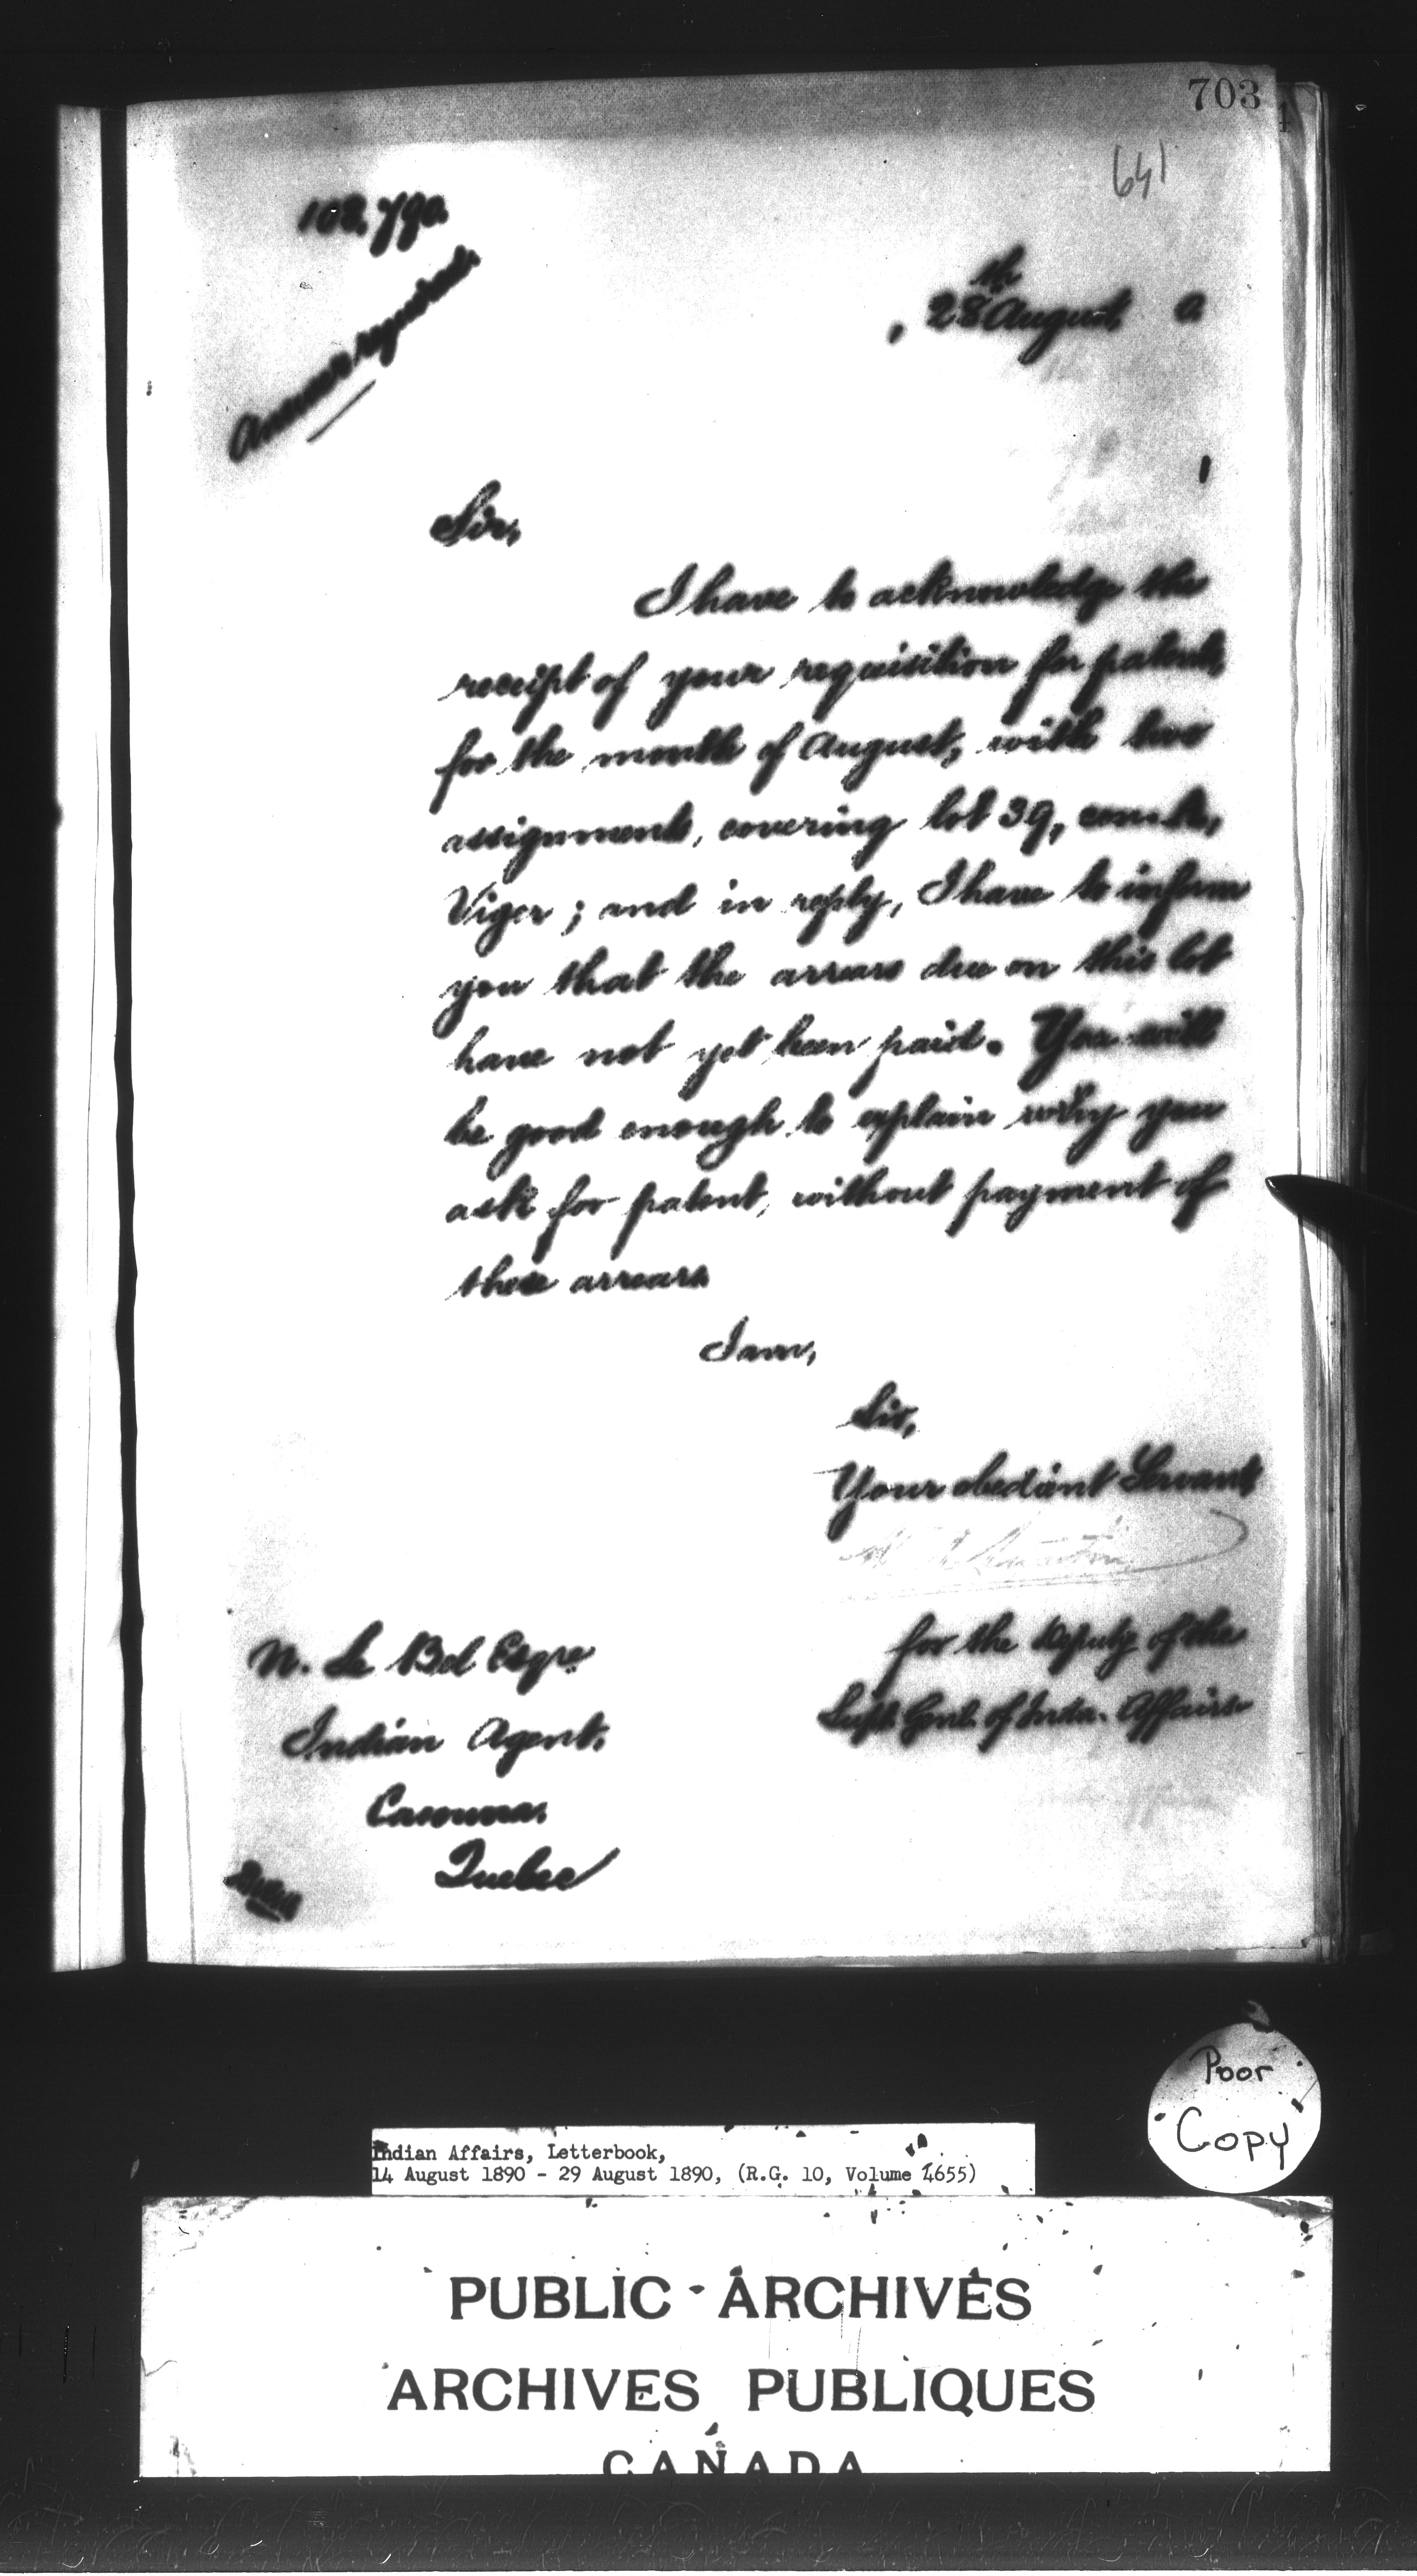 703
641
108,790
Answer required
, 28th August, 0
Sir,
I have to acknowledge the
receipt of your requisition for patents,
for the month of August, with two
assignments, covering lot 39,
Viger; and in reply, I have to inform
you that the arrears due on this lot
have not yet been paid. You will
be good enough to explain why you
ask for patent, without payment of
those arrears
I am,
Sir,
Your obedient Servant
for the Deputy of the
Supt. Genl. of Indn. Affairs
N. Le Bel Esqre
Indian Agent,
Cacouna,
Quebec
Poor
Copy
Indian Affairs, Letterbook,
14 August 1890 - 29 August 1890, (R.G. 10, Volume 4655)
PUBLIC ARCHIVES
ARCHIVES PUBLIQUES
CANADA